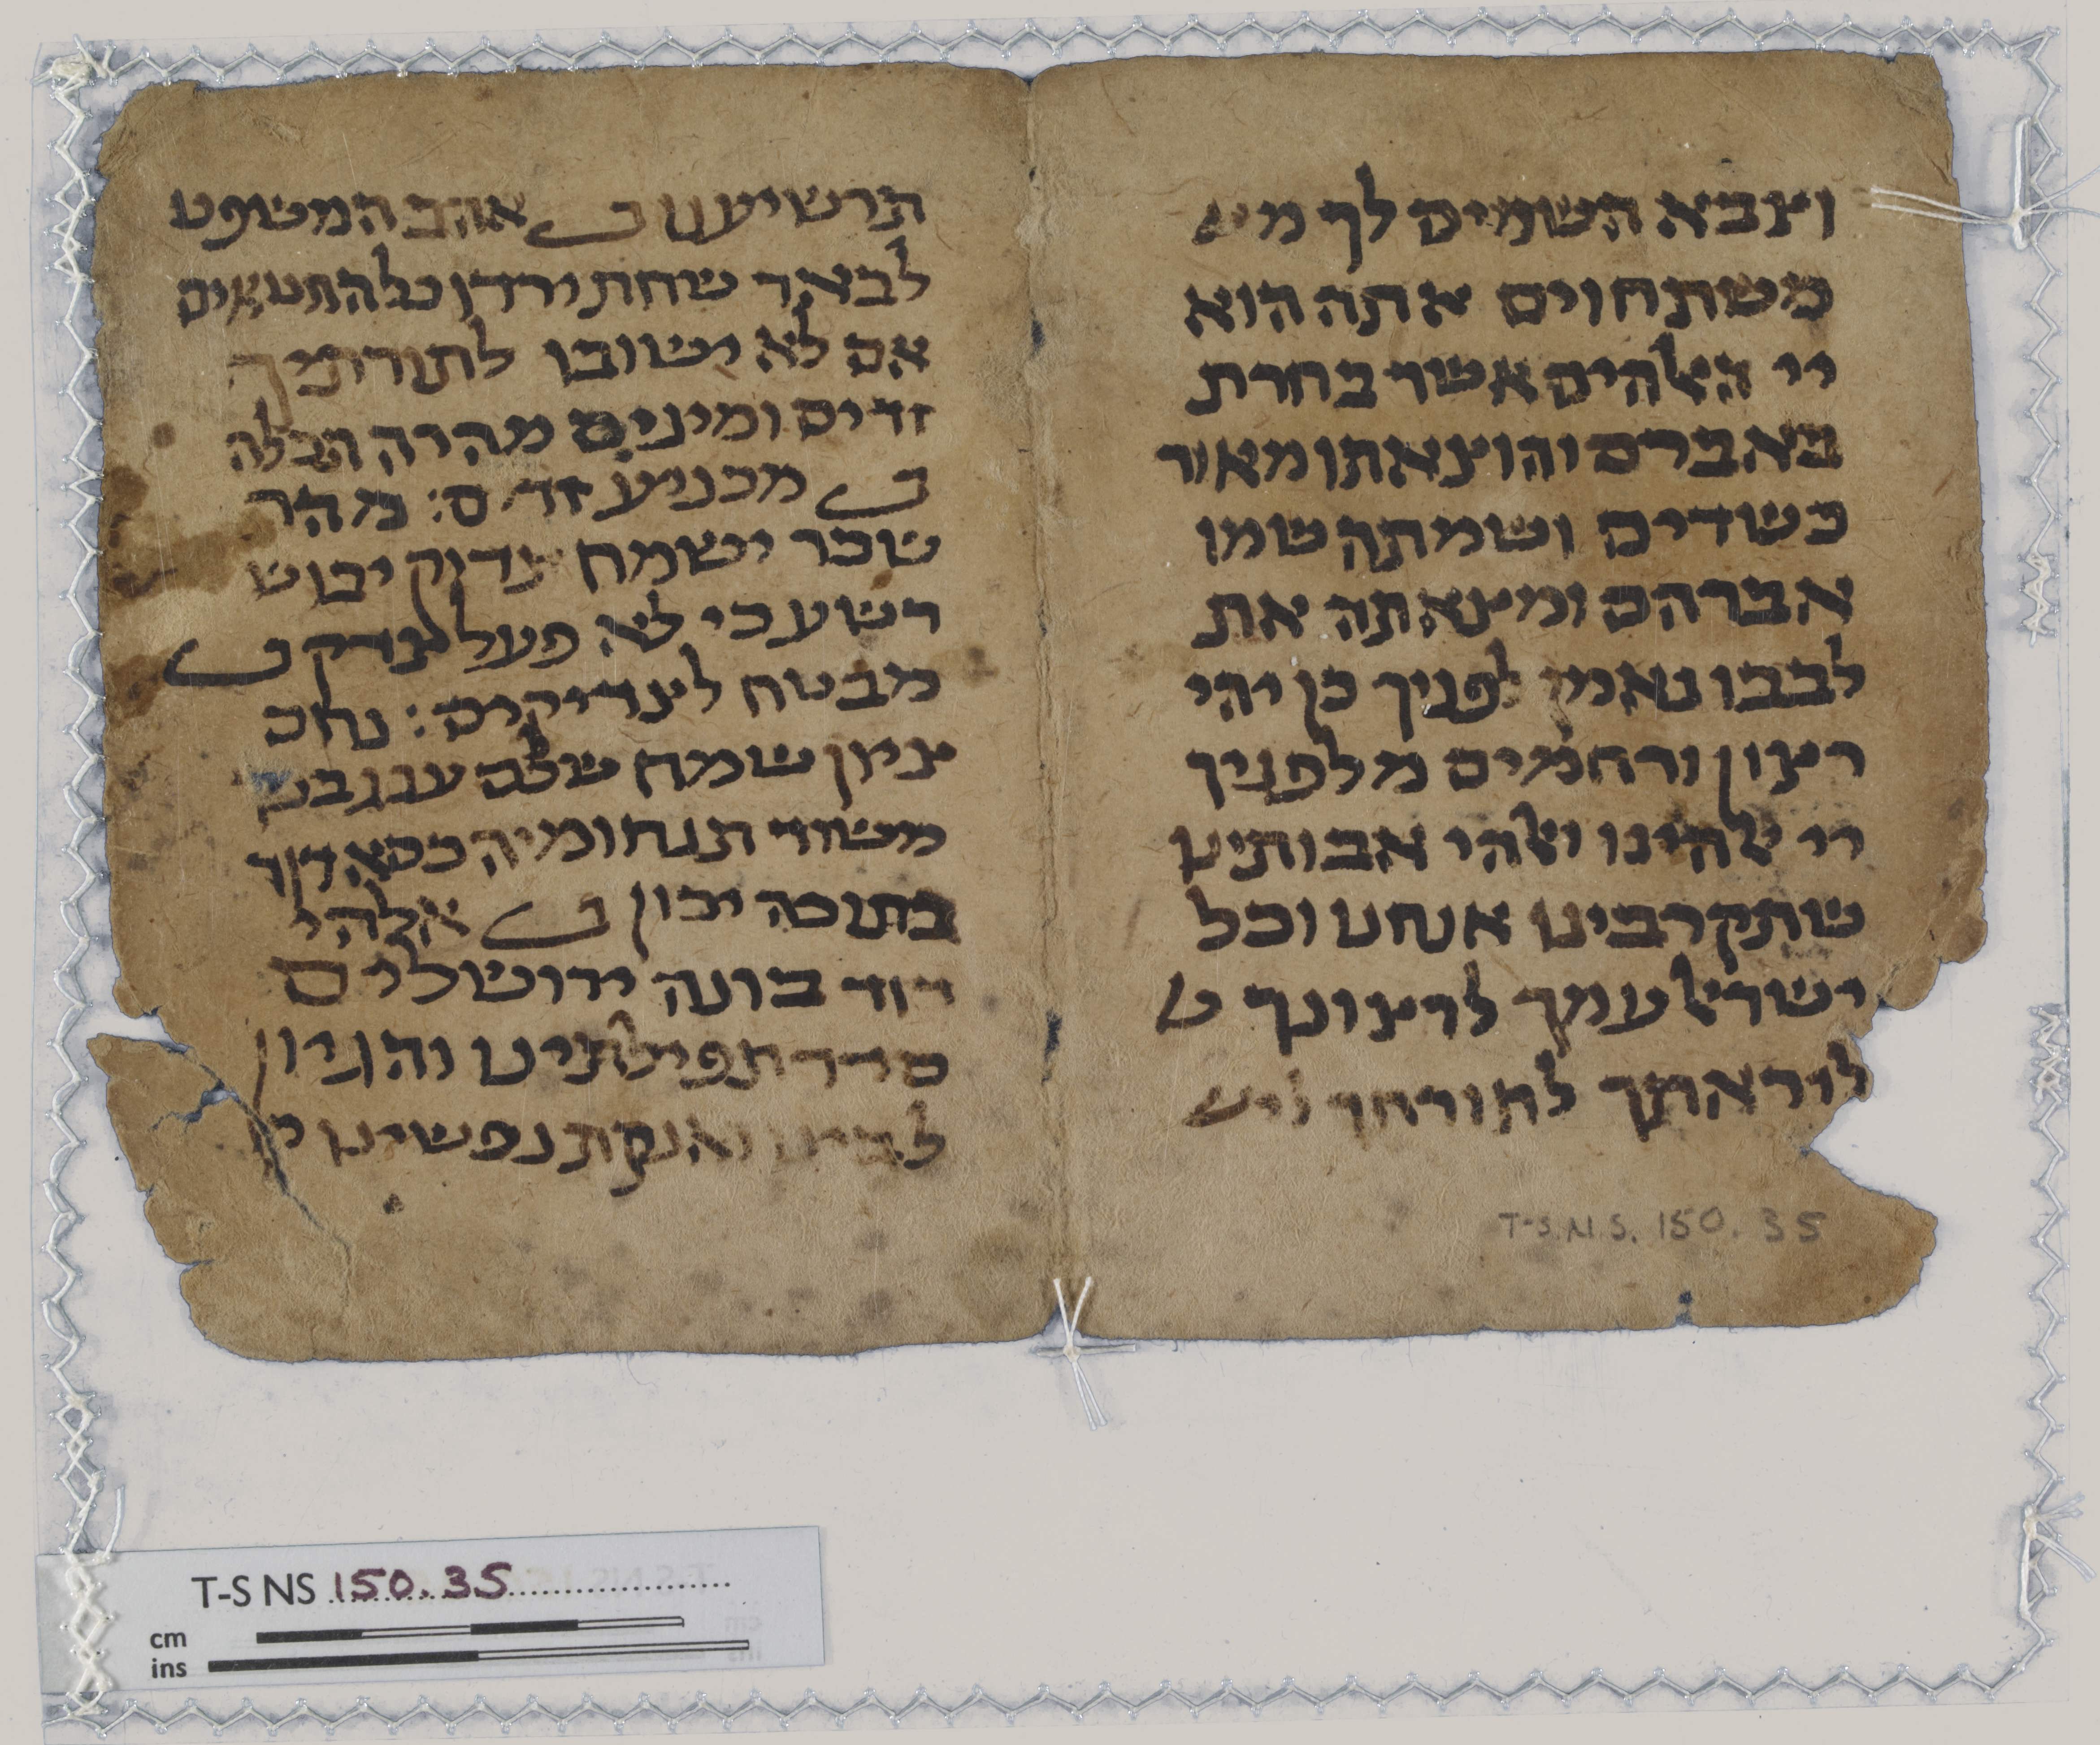 וצבא השמים לך מש
משתחוים אתה הוא
ייי האלהים אשר בחרת
באברם והוצאתו מאור
כשדים ושמתה שמו
אברהם ומצאתה את
לבבו נאמן לפניך כן יהי
רצון ורחמים מלפניך
ייי אלהינו ואלהי אבותינו
שתקרבינו אנחנו וכל
ישראל עמך לרצונך ל
ליראתך לתורתך
T-S.N.S. 150.35
תרשיענו ב אוהב המשפט
לבאר שחת ירדו כל החטאים
אם לא ישובו לתורתיך
זדים ומינים מהרה תכלה
ב מכניע זדים: מהר
שכר ישמח צדוק יבוש
רשע כי לא פעל צדק ב
מבטח לצדיקים: נחם
ציון שמח שלם
משוד תנחומיה כסא דוד
בתוכה יכון ב אלהי
דוד בונה ירושלים
סדר תפילתינו והגיון
לבינו ואנקת נפשינו
T-S NS 150.35
cm
ins